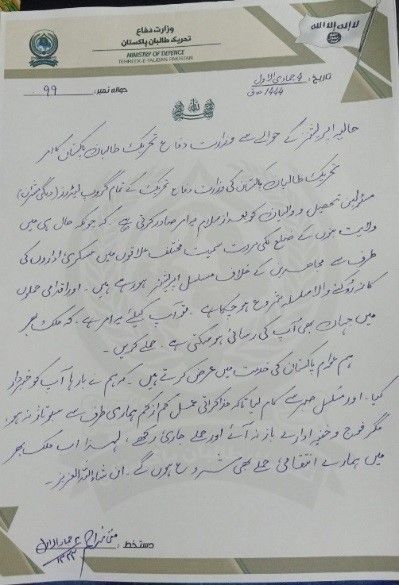 وزارت دفاع
تحریک طالبان پاکستان
MINISTRY OF DEFENCE
TEHREEK-E-TALIBAN PAKISTAN
لا الہ الا اللہ
تاریخ: 4 جمادی الاول
1444
حوالہ نمبر: 99
حالیہ آپریشنز کے حوالے سے وزارت دفاع تحریک طالبان پاکستان کا امر
تحریک طالبان پاکستان کی وزارت دفاع تحریک کے تمام گروپ لیڈروز (دلگی مشران)
مسئولین تحصیل و والیان کو بعد از سلام یہ امر صادر کرتی ہے۔ کہ چونکہ حال ہی میں
ولایت بنوں کے ضلع لکی مروت سمیت مختلف علاقوں میں عسکری اداروں کی
طرف سے مجاہدین کے خلاف مسلسل آپریشنز ہو رہے ہیں۔ اور اقدامی حملوں
کا نہ رکنے والا سلسلہ شروع ہو چکا ہے۔ تو آپ کیلئے یہ امر ہے۔ کہ ملک بھر
میں جہاں بھی آپ کی رسائی ہو سکتی ہے۔ حملے کریں۔
ہم عوام پاکستان کی خدمت میں عرض کرتے ہیں۔ کہ ہم نے بارہا آپ کو خبردار
کیا۔ اور مسلسل صبر سے کام لیا تاکہ مذاکراتی عمل کم از کم ہماری طرف سے سبوتاژ نہ ہو،
مگر فوج و خفیہ ادارے باز نہ آئے اور حملے جاری رکھے، لہٰذا اب ملک بھر
میں ہمارے انتقامی حملے بھی شروع ہوں گے۔ ان شاءاللہ العزیز۔
دستخط: